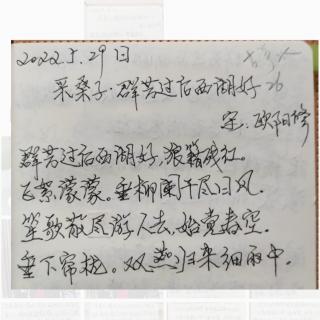 2022.5.29日
采桑子·群芳过后西湖好
26
宋.欧阳修
群芳过后西湖好,狼籍残红.
飞絮濛濛.垂柳阑干尽日风.
笙歌散尽游人去,始觉春空.
垂下帘栊.双燕归来细雨中.